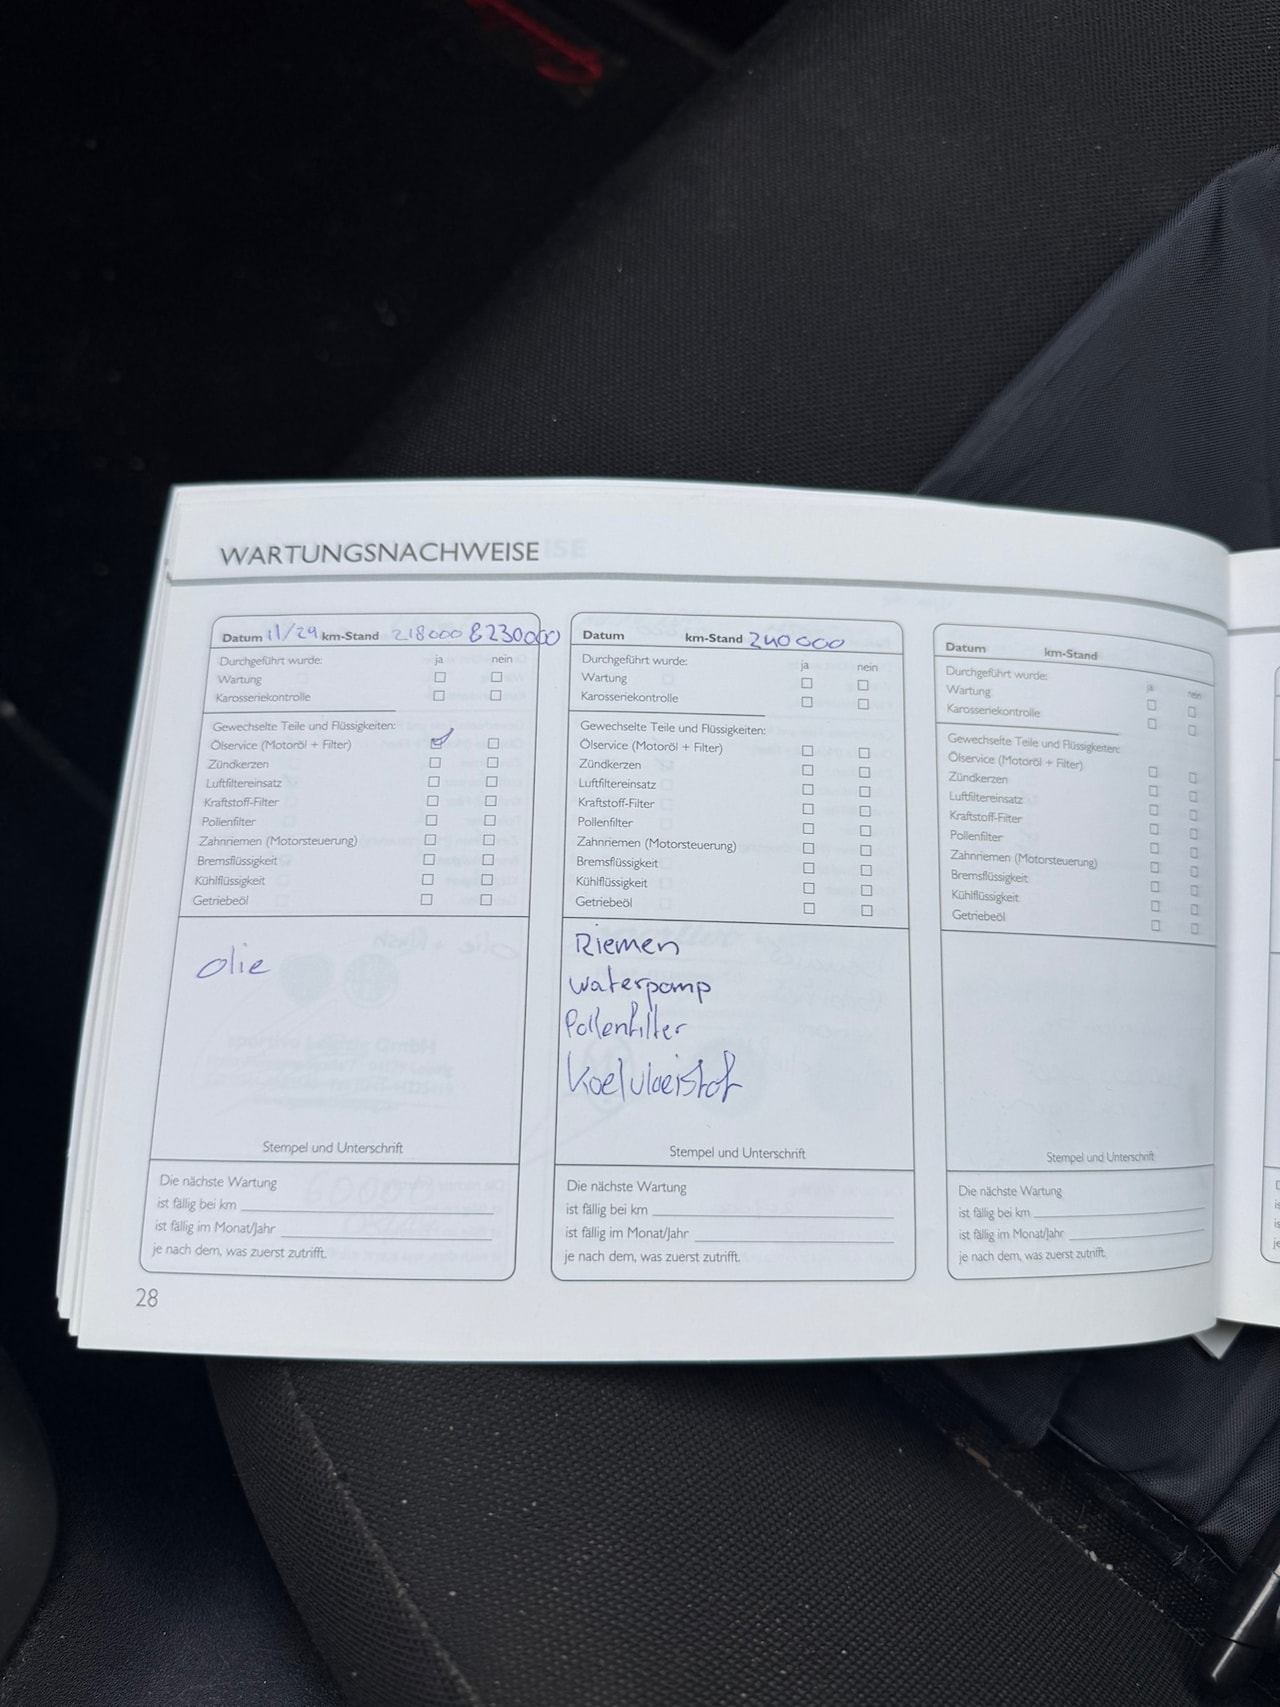 WARTUNGSNACHWEISE
Datum 11/29 km-Stand 218000 & 230000
Durchgeführt wurde: ja nein
Wartung
Karosseriekontrolle
Gewechselte Teile und Flüssigkeiten:
Ölservice (Motoröl + Filter)
Zündkerzen
Luftfiltereinsatz
Kraftstoff-Filter
Pollenfilter
Zahnriemen (Motorsteuerung)
Bremsflüssigkeit
Kühlflüssigkeit
Getriebeöl
olie
Stempel und Unterschrift
Die nächste Wartung
ist fällig bei km
ist fällig im Monat/Jahr
je nach dem, was zuerst zutrifft.
Datum km-Stand 240000
Durchgeführt wurde: ja nein
Wartung
Karosseriekontrolle
Gewechselte Teile und Flüssigkeiten:
Ölservice (Motoröl + Filter)
Zündkerzen
Luftfiltereinsatz
Kraftstoff-Filter
Pollenfilter
Zahnriemen (Motorsteuerung)
Bremsflüssigkeit
Kühlflüssigkeit
Getriebeöl
Riemen
waterpomp
Pollenfilter
Koelvloeistof
Stempel und Unterschrift
Die nächste Wartung
ist fällig bei km
ist fällig im Monat/Jahr
je nach dem, was zuerst zutrifft.
Datum km-Stand
Durchgeführt wurde: ja nein
Wartung
Karosseriekontrolle
Gewechselte Teile und Flüssigkeiten:
Ölservice (Motoröl + Filter)
Zündkerzen
Luftfiltereinsatz
Kraftstoff-Filter
Pollenfilter
Zahnriemen (Motorsteuerung)
Bremsflüssigkeit
Kühlflüssigkeit
Getriebeöl
Stempel und Unterschrift
Die nächste Wartung
ist fällig bei km
ist fällig im Monat/Jahr
je nach dem, was zuerst zutrifft.
28